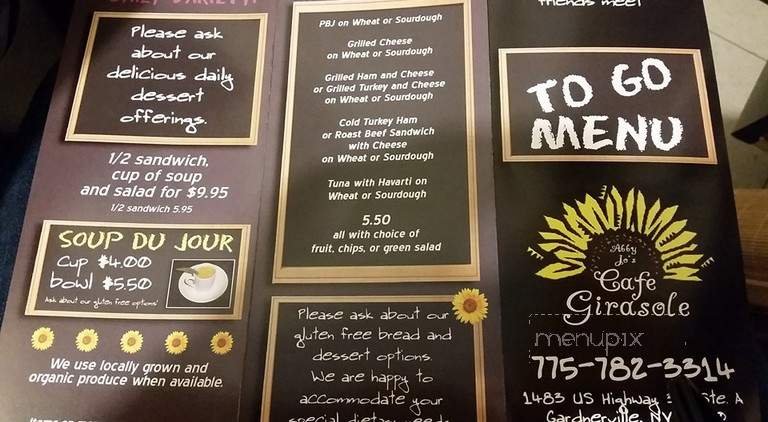 Please ask
about our
delicious daily
dessert
offerings.
1/2 sandwich,
cup of soup
and salad for $9.95
1/2 sandwich 5.95
SOUP DU JOUR
cup $4.00
bowl $5.50
Ask about our gluten free options!
We use locally grown and
organic produce when available.
PBJ on Wheat or Sourdough
Grilled Cheese
on Wheat or Sourdough
Grilled Ham and Cheese
or Grilled Turkey and Cheese
on Wheat or Sourdough
Cold Turkey Ham
or Roast Beef Sandwich
with Cheese
on Wheat or Sourdough
Tuna with Havarti on
Wheat or Sourdough
5.50
all with choice of
fruit, chips, or green salad
Please ask about our
gluten free bread and
dessert options.
We are happy to
accommodate your
special dietary needs
friends meet
TO GO
MENU
Abby
Jo's
Cafe
Girasole
menupix
775-782-3314
1483 US Highway Ste. A
Gardnerville, NV